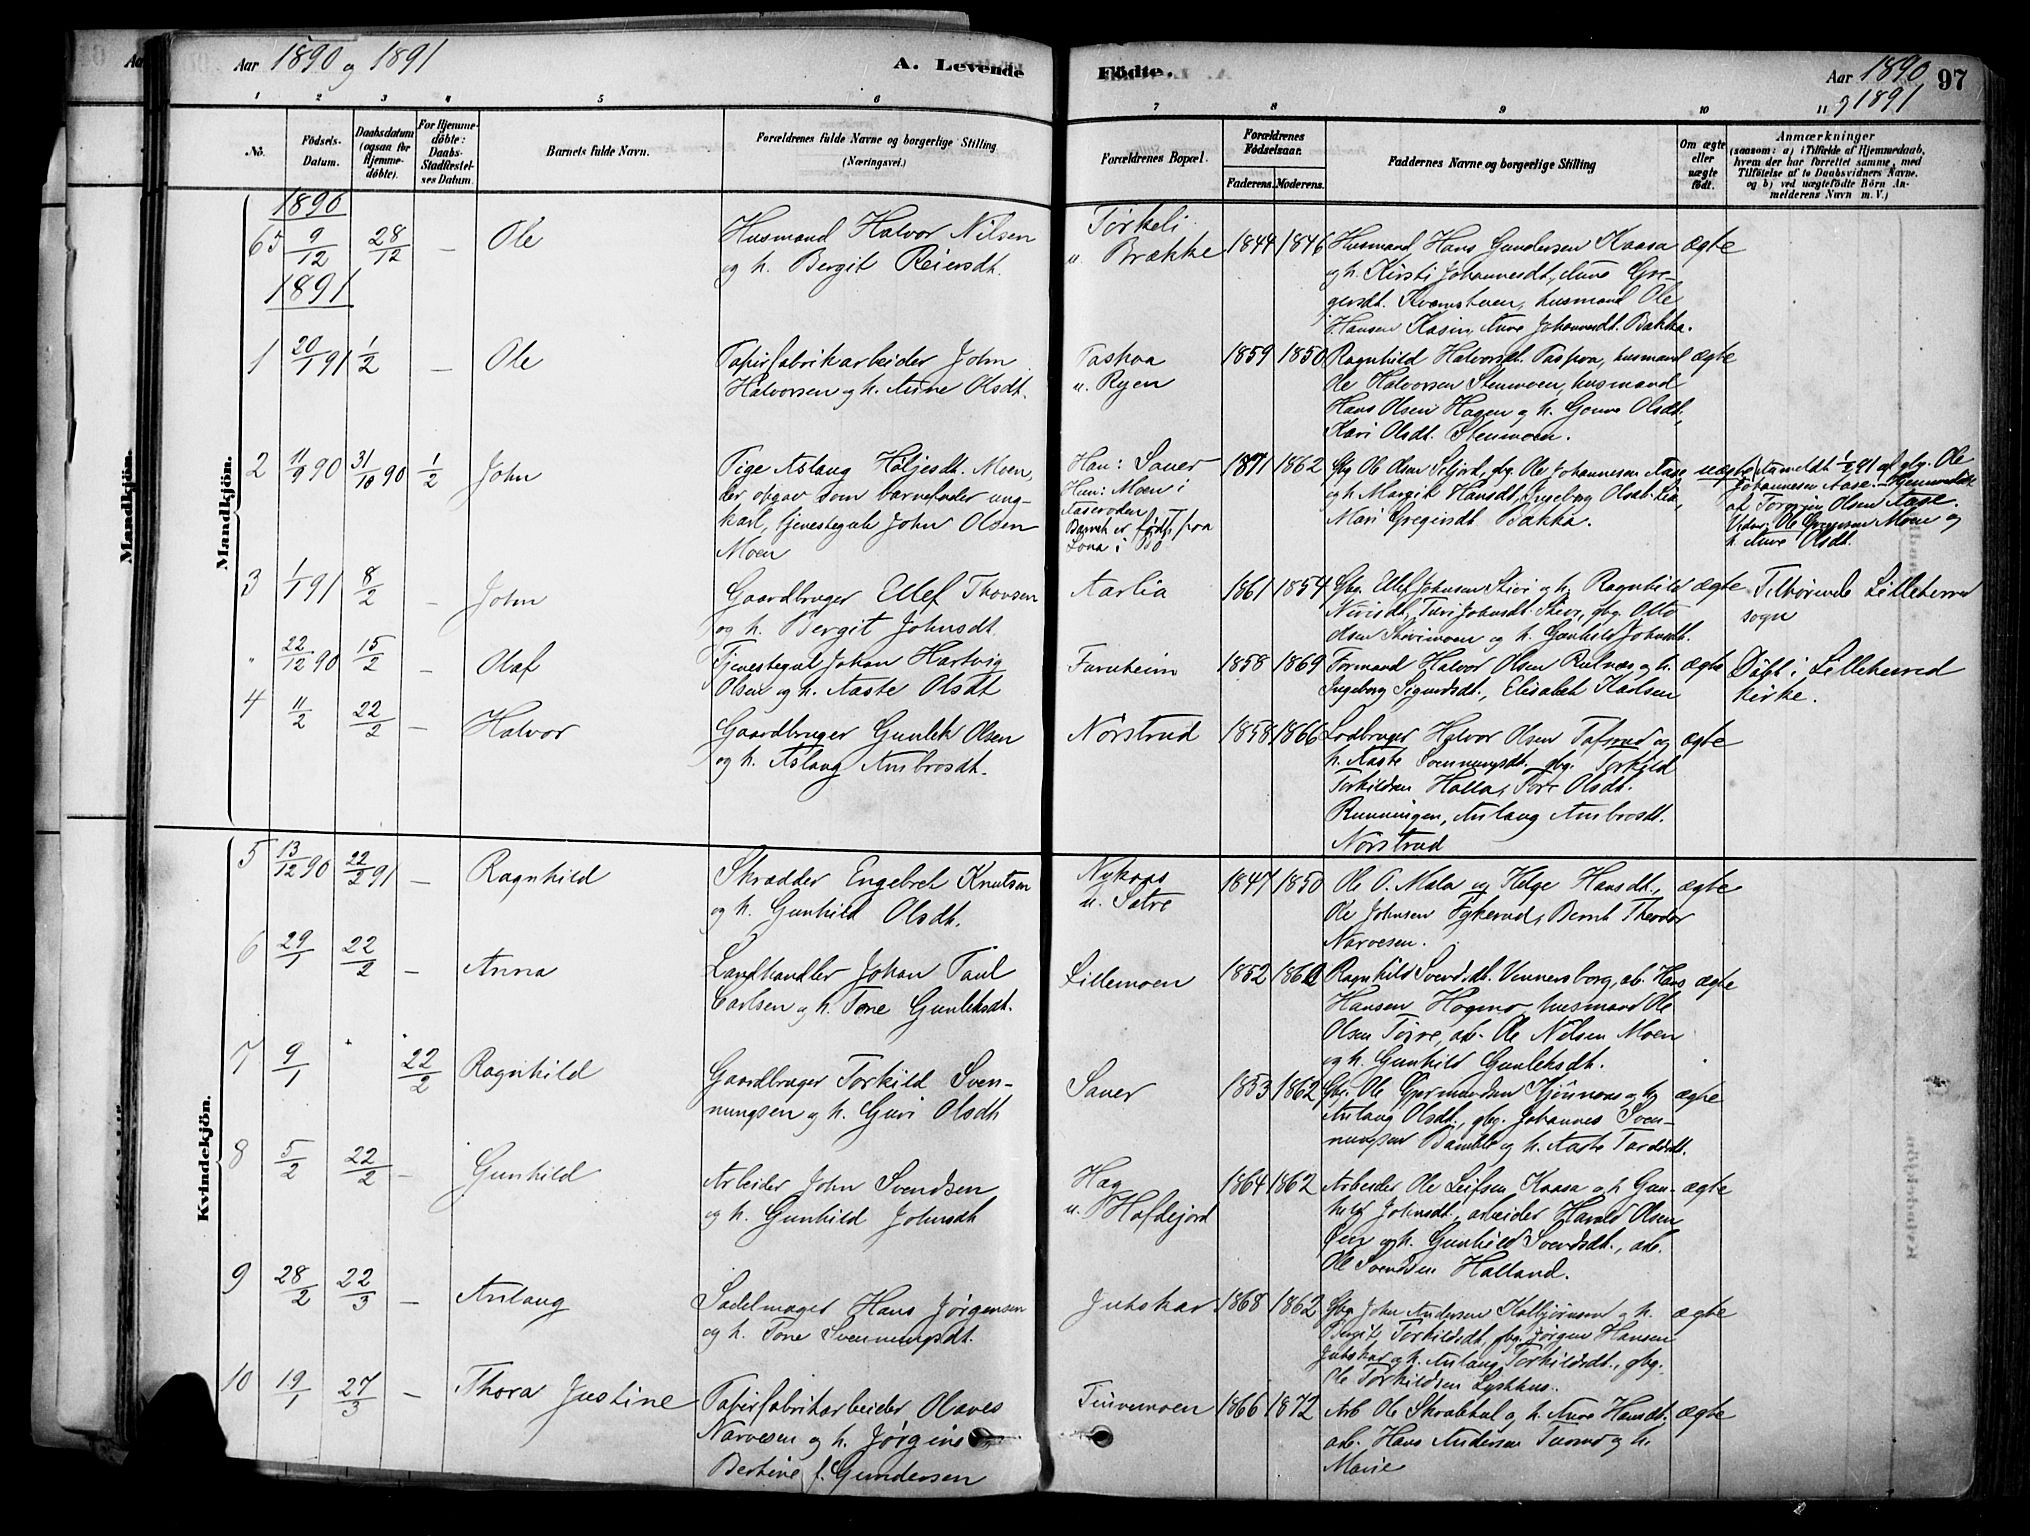 Aar 1890 og 1891
A. Levende
Födte.
Aar 1890
97
og 1891
1 2 3 4 5 6 7 8 9 10 11
No.
Födsels-
Datum.
Daabsdatum
(ogsaa for
Hjemme-
döbte).
For Hjemme-
döbte:
Daabs-
Stadfæstel-
ses Datum.
Barnets fulde Navn.
Forældrenes fulde Navne og borgerlige Stilling
(Næringsvei.)
Forældrenes Bopæl.
Forældrenes
Födselsaar.
Faderens. Moderens.
Faddernes Navne og borgerlige Stilling
Om ægte
eller
uægte
födt.
Anmærkninger
(saasom: a) i Tilfælde af Hjemmedaab,
hvem der har forrettet samme, med
Tilföielse af to Daabsvidners Navne.
og b) ved uægtefödte Börn An-
melderens Navn m. V.)
Mandkjön.
1890
65 9/12 28/12 — Ole
Husmand Halvor Nilsen
og h. Bergit Reiersdt.
Törkeli
u. Brække
1844 1846
Husmand Hans Gundersen Kaasa
og h. Kirsti Johannesdt., Anne Gre-
gersdt. Kvamsteen, husmand Ole
Hansen Kasin, Anne Johannesdt. Bakka.
ægte
1891
1 20/1 91 1/2 — Ole
Papirfabrikarbeider John
Halvorsen og h. Anne Olsdt.
Taskaa
u. Ryen
1859 1850
Ragnhild Halvorsdt. Taskaa, husmand
Ole Halvorsen Stenmoen, husmand
Hans Olsen Hagen og h. Gonve Olsdt.,
Kari Olsdt. Stenmoen.
ægte
2 11/9 90 31/10 90 1/2 John
Pige Aslaug Höljesdt. Moen,
der opgav som barnefader ung-
karl, tjenestegut John Olsen
Moen
Han: Sauer
Hun: Moen i
Barnet er födt paa
Lona i Bö
1871 1862
Gbg. Ole Olsen Seljord, gbg. Ole Johannesen Aase
og h. Margit Hansdt., Ingeborg Olsdt. Lia,
Mari Gregersdt. Bakka.
uægte
Anmeldt 1/2 91 af gbg. Ole
Johannesen Aase. Hjemmedöbt
af Torgrim Olsen Aase.
Vidner: Ole Gregersen Moen og
h. Anne Olsdt.
3 1/1 91 8/2 — John
Gaardbruger Ellef Thovsen
og h. Bergit Johnsdt.
Aarlia
1861 1854
Gbg. Ellef Johnsen Skoi og h. Ragnhild
Nirisdt., Turi Johnsdt. Skoi, gbg. Otto
Olsen Skoimoen og h. Gunhild Johnsdt.
ægte
Tilhörende Lilleherred
sogn
" 22/12 90 15/2 — Olaf
Tjenestegut Johan Hartvig
Olsen og h. Aaste Olsdt
Furuheim
1858 1869
Formand Halvor Olsen Rutnæs og h.
Ingeborg Sigurdsdt., Elisabet Karlsen
ægte
Döbt i Lilleherred
kirke.
4 11/2 22/2 — Halvor
Gaardbruger Gunlek Olsen
og h. Aslaug Ambrosdt.
Nörstrud
1858 1866
Lodbruger Halvor Olsen Tafsrud og
h. Aaste Svenningsdt., gbg. Torkild
Torkildsen Holla, Tore Olsdt.
Runningen, Anlaug Ambrosdt.
Nörstrud
ægte
Kvindekjön.
5 13/12 90 22/2 91 — Ragnhild
Skrædder Engebret Knutsen
og h. Gunhild Olsdt.
Nykaas
u. Satre
1847 1850
Ole O. Mela og Helge Hansdt.,
Ole Johnsen Fykerud, Bernt Theodor
Narvesen.
ægte
6 29/1 22/2 — Anna
Landhandler Johan Paul
Carlsen og h. Tone Gunleksdt.
Lillemoen
1852 1860
Ragnhild Svendsdt. Vennersborg, arb. Hans
Hansen Hogmo, husmand Ole
Olsen Töire, arb. Ole Nilsen Moen
og h. Gunhild Gunleksdt.
ægte
7 9/1 " 22/2 Ragnhild
Gaardbruger Torkild Sven-
nungsen og h. Guri Olsdt
Sauer
1853 1862
Gbg. Ole Gjermundsen Kjönnaas og h
Anlaug Olsdt., gbg. Johannes Sven-
nungsen Bamble og h. Aaste Tordsdt.
ægte
8 5/2 22/2 — Gunhild
Arbeider John Svendsen
og h. Gunhild Johnsdt
Hag
u. Hofdejord
1864 1862
Arbeider Ole Leifsen Kaasa og h Gun-
hild Johnsdt., arbeider Harald Olsen
Øen og h. Gunhild Svendsdt., arb.
Ole Svendsen Halland.
ægte
9 28/2 22/3 — Anlaug
Sadelmager Hans Jørgensen
og h. Tone Svenningsdt.
Jutskar
1868 1862
Gbg. John Andersen Kolbjørnsrud og h.
Bergit Torkildsdt., gbg. Jørgen Hansen
Jutskar og h. Anlaug Torkildsdt., gbg.
Ole Torkildsen Lysthus.
ægte
10 19/1 27/3 — Thora Justine
Papirfabrikarbeider Olaves
Narvesen og h. Jørgine
Bertine f. Gundersen
Tinnemoen
1866 1872
Arb Ole Skrabhul og h. Anne Hansdt.
arb. Hans Andersen Tusmo og h.
Marie
ægte